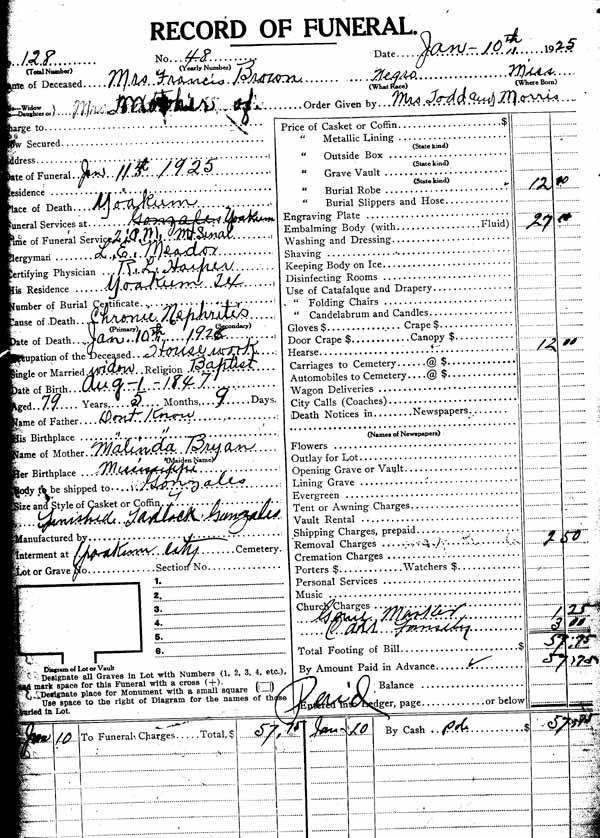 RECORD OF FUNERAL.
128 No. 48 Date Jan - 10th 1925
(Total Number) (Yearly Number)
me of Deceased Mrs. Francis Brown Negro Miss
(What Race) (Where Born)
Widow
Daughter or) Mrs Mother of Order Given by Mrs Todd and Morris
harge to
ow Secured
Address
Date of Funeral Jan 11th 1925
Residence
Place of Death Yoakum
Funeral Services at Gonzales Yoakum
Time of Funeral Service 2 P.M. Mt Sinai
Clergyman L. E. Meador
Certifying Physician R. L. Harper
His Residence Yoakum Tx
Number of Burial Certificate
Cause of Death Chronic Nephritis
(Primary) (Secondary)
Date of Death Jan. 10th 1925
Occupation of the Deceased Housework
Single or Married widow Religion Baptist
Date of Birth Aug - 1 - 1847
Aged 79 Years, 5 Months, 9 Days.
Name of Father Dont Know
His Birthplace " "
Name of Mother Malinda Bryan
(Maiden Name)
Her Birthplace Mississippi
Body to be shipped to Gonzales
Size and Style of Casket or Coffin
Finished Gonzales
Manufactured by
Interment at Yoakum City Cemetery.
Lot or Grave No. Section No.
1.
2.
3.
4.
5.
6.
Diagram of Lot or Vault
Designate all Graves in Lot with Numbers (1, 2, 3, 4, etc.),
and mark space for this Funeral with a cross (+).
Designate place for Monument with a small square
Use space to the right of Diagram for the names of those
buried in Lot.
Price of Casket or Coffin $
" Metallic Lining
(State kind)
" Outside Box
(State kind)
" Grave Vault
(State kind)
" Burial Robe 12 00
" Burial Slippers and Hose
Engraving Plate
Embalming Body (with Fluid) 27 00
Washing and Dressing
Shaving
Keeping Body on Ice
Disinfecting Rooms
Use of Catafalque and Drapery
" Folding Chairs
" Candelabrum and Candles
Gloves $ Crape $
Door Crape $ Canopy $
Hearse 12 00
Carriages to Cemetery @ $
Automobiles to Cemetery @ $
Wagon Deliveries
City Calls (Coaches)
Death Notices in Newspapers
(Names of Newspapers)
Flowers
Outlay for Lot
Opening Grave or Vault
Lining Grave
Evergreen
Tent or Awning Charges
Vault Rental
Shipping Charges, prepaid
Removal Charges 2 50
Cremation Charges
Porters $ Watchers $
Personal Services
Music
Church Charges
Grave Marker 1 25
Family 3 00
Total Footing of Bill $ 57.75
By Amount Paid in Advance ✓ 57.75
Balance
Paid
Entered into Ledger, page or below
Jan 10 To Funeral Charges Total, $ 57.75 Jan - 10 By Cash pd. $ 57.75